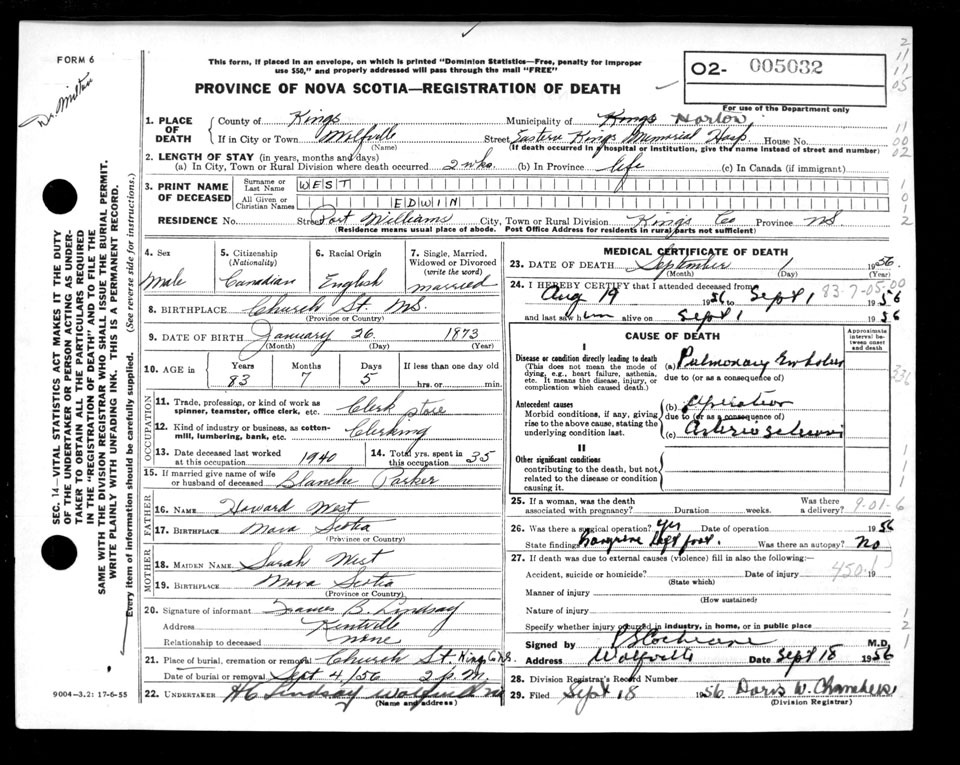 FORM 6
Dr. Milton
This form, if placed in an envelope, on which is printed "Dominion Statistics—Free, penalty for improper
use $50," and properly addressed will pass through the mail "FREE"
PROVINCE OF NOVA SCOTIA—REGISTRATION OF DEATH
O2- 005032
For use of the Department only
1. PLACE OF DEATH
County of Kings Municipality of Kings Horton
If in City or Town Wolfville (Name) Street Eastern Kings Memorial Hosp House No.
(If death occurred in a hospital or institution, give the name instead of street and number)
2. LENGTH OF STAY (in years, months and days)
(a) In City, Town or Rural Division where death occurred 2 wks. (b) In Province life (c) In Canada (if immigrant)
3. PRINT NAME OF DECEASED
Surname or Last Name WEST
All Given or Christian Names EDWIN
RESIDENCE No. Street Port Williams City, Town or Rural Division Kings Co Province NS
(Residence means usual place of abode. Post Office Address for residents in rural parts not sufficient)
4. Sex
Male
5. Citizenship (Nationality)
Canadian
6. Racial Origin
English
7. Single, Married, Widowed or Divorced (write the word)
married
8. BIRTHPLACE Church St. NS
(Province or Country)
9. DATE OF BIRTH January 26 1873
(Month) (Day) (Year)
10. AGE in Years Months Days If less than one day old
83 7 5 hrs. or min.
OCCUPATION
11. Trade, profession, or kind of work as spinner, teamster, office clerk, etc. Clerk store
12. Kind of industry or business, as cotton-mill, lumbering, bank, etc. Clerking
13. Date deceased last worked at this occupation 1940 14. Total yrs. spent in this occupation 35
15. If married give name of wife or husband of deceased Blanche Parker
FATHER
16. NAME Howard West
17. BIRTHPLACE Nova Scotia
(Province or Country)
MOTHER
18. MAIDEN NAME Sarah West
19. BIRTHPLACE Nova Scotia
(Province or Country)
20. Signature of informant B. Lindsay
Address Kentville
Relationship to deceased none
21. Place of burial, cremation or removal Church St. Kings Co NS.
Date of burial or removal Sept 4/56 2 p.m.
22. UNDERTAKER H C Lindsay
(Name and address)
MEDICAL CERTIFICATE OF DEATH
23. DATE OF DEATH September 1 1956.
(Month) (Day)
24. I HEREBY CERTIFY that I attended deceased from
Aug 19 1956 to Sept 1 1956
83-7-05-00
and last saw him alive on Sept 1 1956
CAUSE OF DEATH
Approximate interval between onset and death
I
Disease or condition directly leading to death
(This does not mean the mode of dying, e.g., heart failure, asthenia, etc. It means the disease, injury, or complication which caused death.)
(a) Pulmonary Embolus
due to (or as a consequence of)
Antecedent causes
Morbid conditions, if any, giving rise to the above cause, stating the underlying condition last.
(b) Operation
due to (or as a consequence of)
(c) Arteriosclerosis
II
Other significant conditions
contributing to the death, but not related to the disease or condition causing it.
25. If a woman, was the death associated with pregnancy? Duration weeks. Was there a delivery?
9-01-6
26. Was there a surgical operation? Yes Date of operation 1956
State findings Gangrene left foot. Was there an autopsy? No
27. If death was due to external causes (violence) fill in also the following:—
Accident, suicide or homicide? Date of injury 19
(State which)
450-1
Manner of injury
(How sustained)
Nature of injury
Specify whether injury occurred in industry, in home, or in public place
Signed by Cochrane M.D.
Address Wolfville Date Sept 18 1956
28. Division Registrar's Record Number
29. Filed Sept 18 1956. Doris W. Chambers
(Division Registrar)
SEC. 14—VITAL STATISTICS ACT MAKES IT THE DUTY
OF THE UNDERTAKER OR PERSON ACTING AS UNDER-
TAKER TO OBTAIN ALL THE PARTICULARS REQUIRED
IN THE "REGISTRATION OF DEATH" AND TO FILE THE
SAME WITH THE DIVISION REGISTRAR WHO SHALL ISSUE THE BURIAL PERMIT.
WRITE PLAINLY WITH UNFADING INK. THIS IS A PERMANENT RECORD.
Every item of information should be carefully supplied. (See reverse side for instructions.)
9004-3.2: 17-6-55